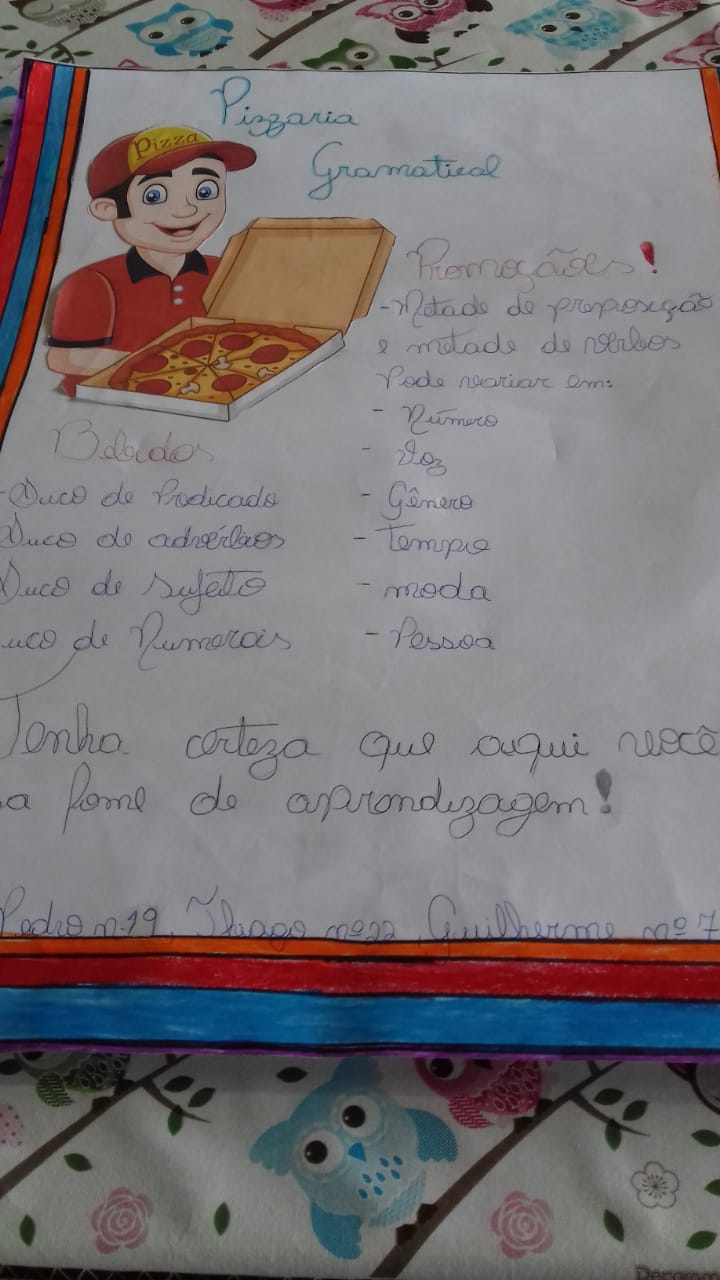 Pizzaria
Gramatical
Pizza
Promoçãoes!
- Metade de preposição
e metade de vérbos
Pode variar em:
- Número
- Voz
- Gênero
- Tempo
- moda
- Pessoa
Bebidas
- Suco de Predicado
Suco de advérbios
Suco de sujeito
uco de Numerais
Tenha certeza que aqui você
a fome de aprendizagem!
Pedro n.19, Thiago nº22, Guilherme nº 7